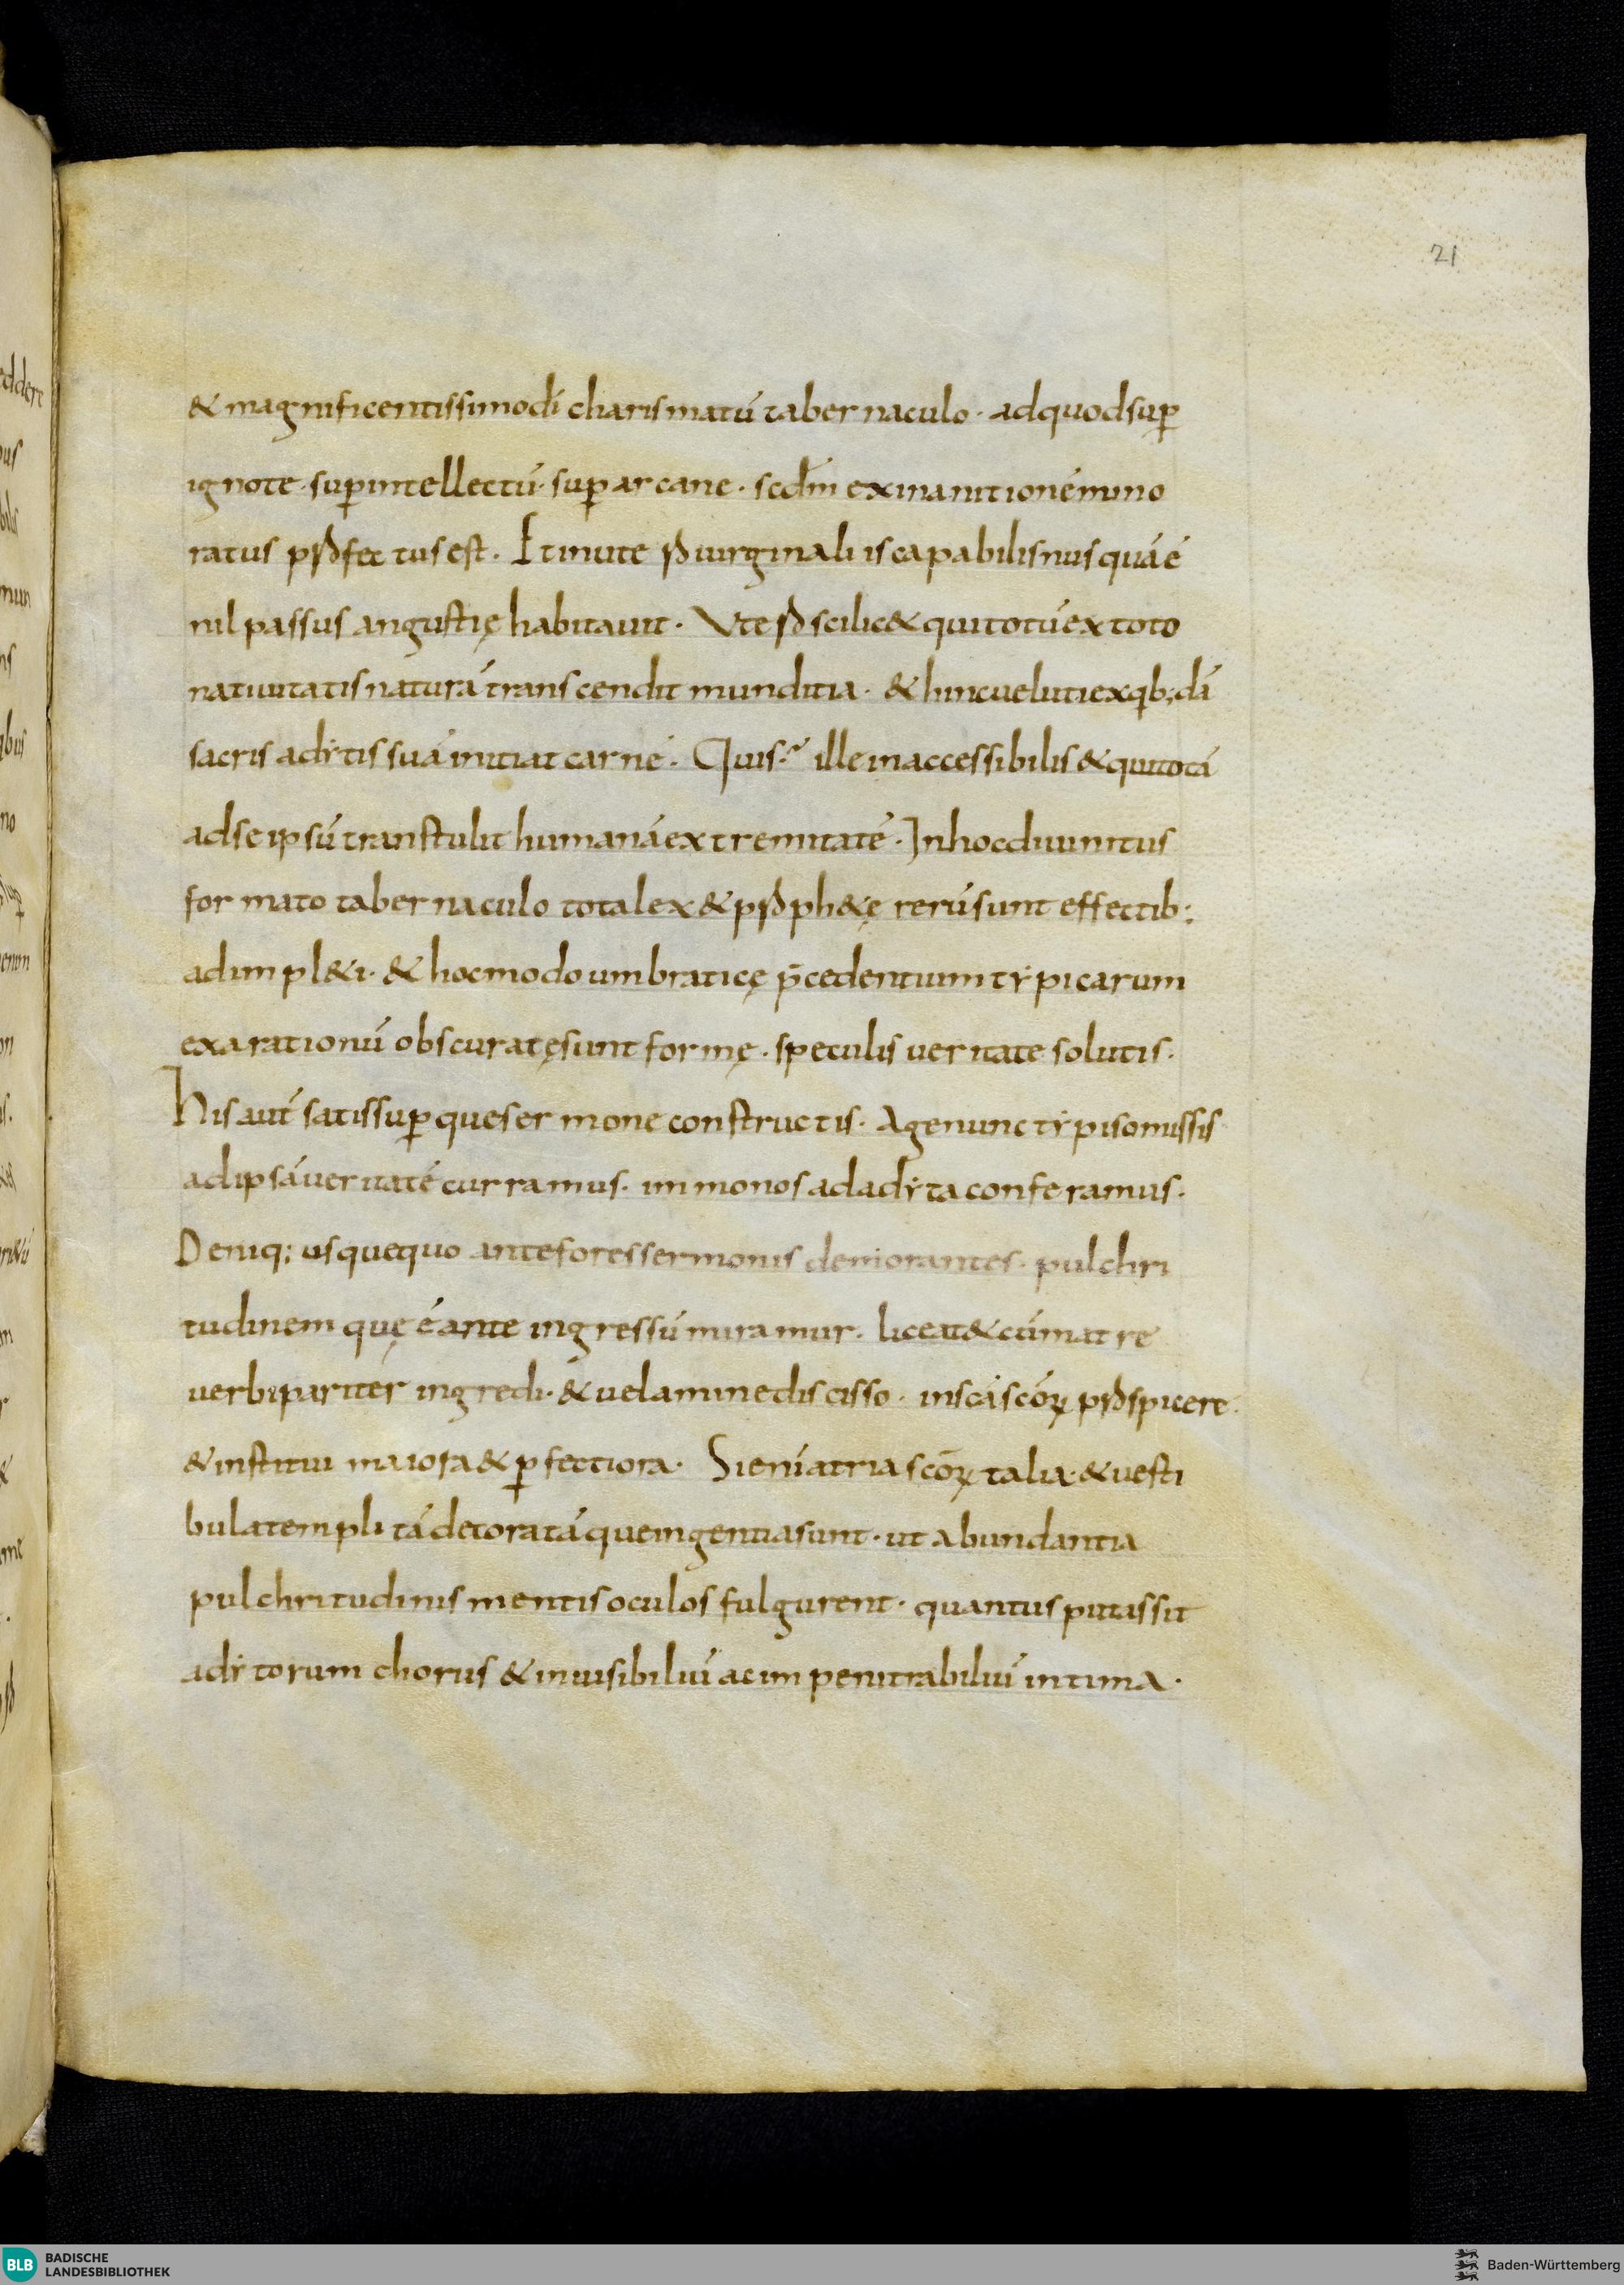 21
& magnificentissimo dī charismatū tabernaculo · ad quod suꝑ
ignote · suꝑ intellectū · suꝑ arcane · scdm̄ exinanitionē mino
ratus ꝓfectus est · Et in utero uirginali is capabilis nusquā ē
nil passus angustię habitauit · Utero scilic& qui totū ex toto
natiuitatis naturā transcendit munditia · & hinc ueluti ex qb;dā
sacris adẏtis suā initiat carnē · Quis? ille inaccessibilis & qui totā
ad se ipsū transtulit humanā extremitatē · In hoc diuinitus
formato tabernaculo tota lex & ꝓph&ę rerū sunt effectib;
adimpl&i · & hoc modo umbraticę p̄cedentium tẏpicarum
exarationū obscuratę sunt formę · speculis ueritate solutis ·
His aut̄ satis suꝑque sermone constructis · Age nunc tẏpis omissis
ad ipsā ueritatē curramus · immo nos ad adẏta conferamus ·
Deniq; usquequo ante fores sermonis demorantes · pulchri
tudinem quę ē ante ingressū miramur · liceat & cū matre
uerbi pariter ingredi · & uelamine discisso · in scā scōꝝ ꝓspicere ·
& institui maiora & ꝑfectiora · Si enī atria scōꝝ talia · & uesti
bula templi tā decora tāque ingentia sunt · ut abundantia
pulchritudinis mentis oculos fulgurent · quantus putas sit
adẏtorum chorus & inuisibiliū ac impenitrabiliū intima ·
BLB BADISCHE
LANDESBIBLIOTHEK
Baden-Württemberg